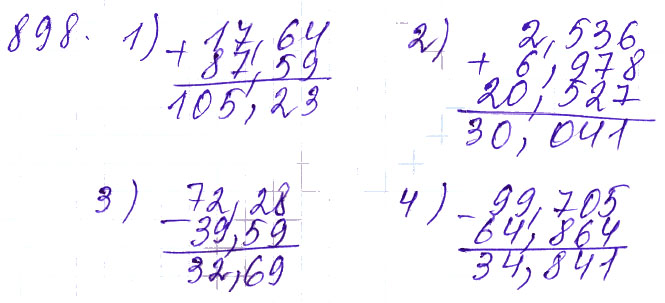 898. 1) 17,64
+ 87,59
105,23
2) 2,536
+ 6,978
20,527
30,041
3) 72,28
- 39,59
32,69
4) 99,705
- 64,864
34,841